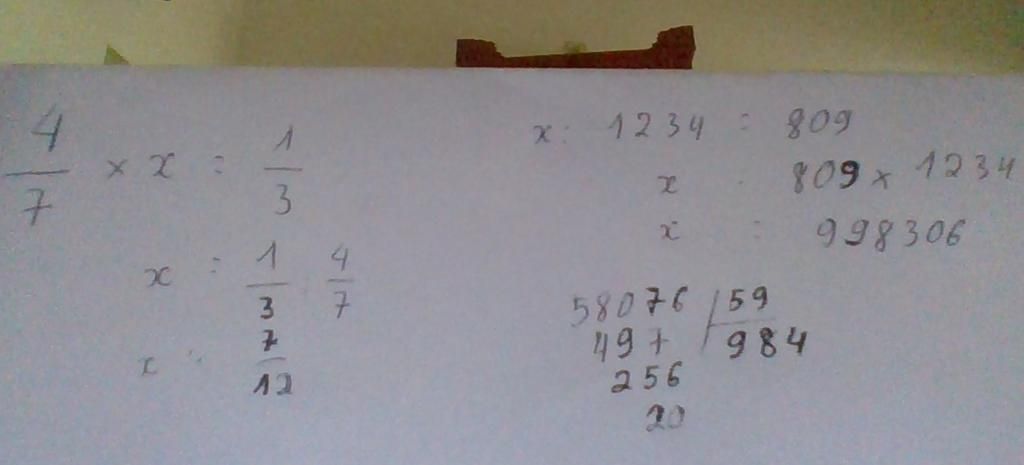 4/7 × x = 1/3
x = 1/3 : 4/7
x = 7/12
x : 1234 = 809
x = 809 x 1234
x = 998306
58076 | 59
497 | 984
256
20